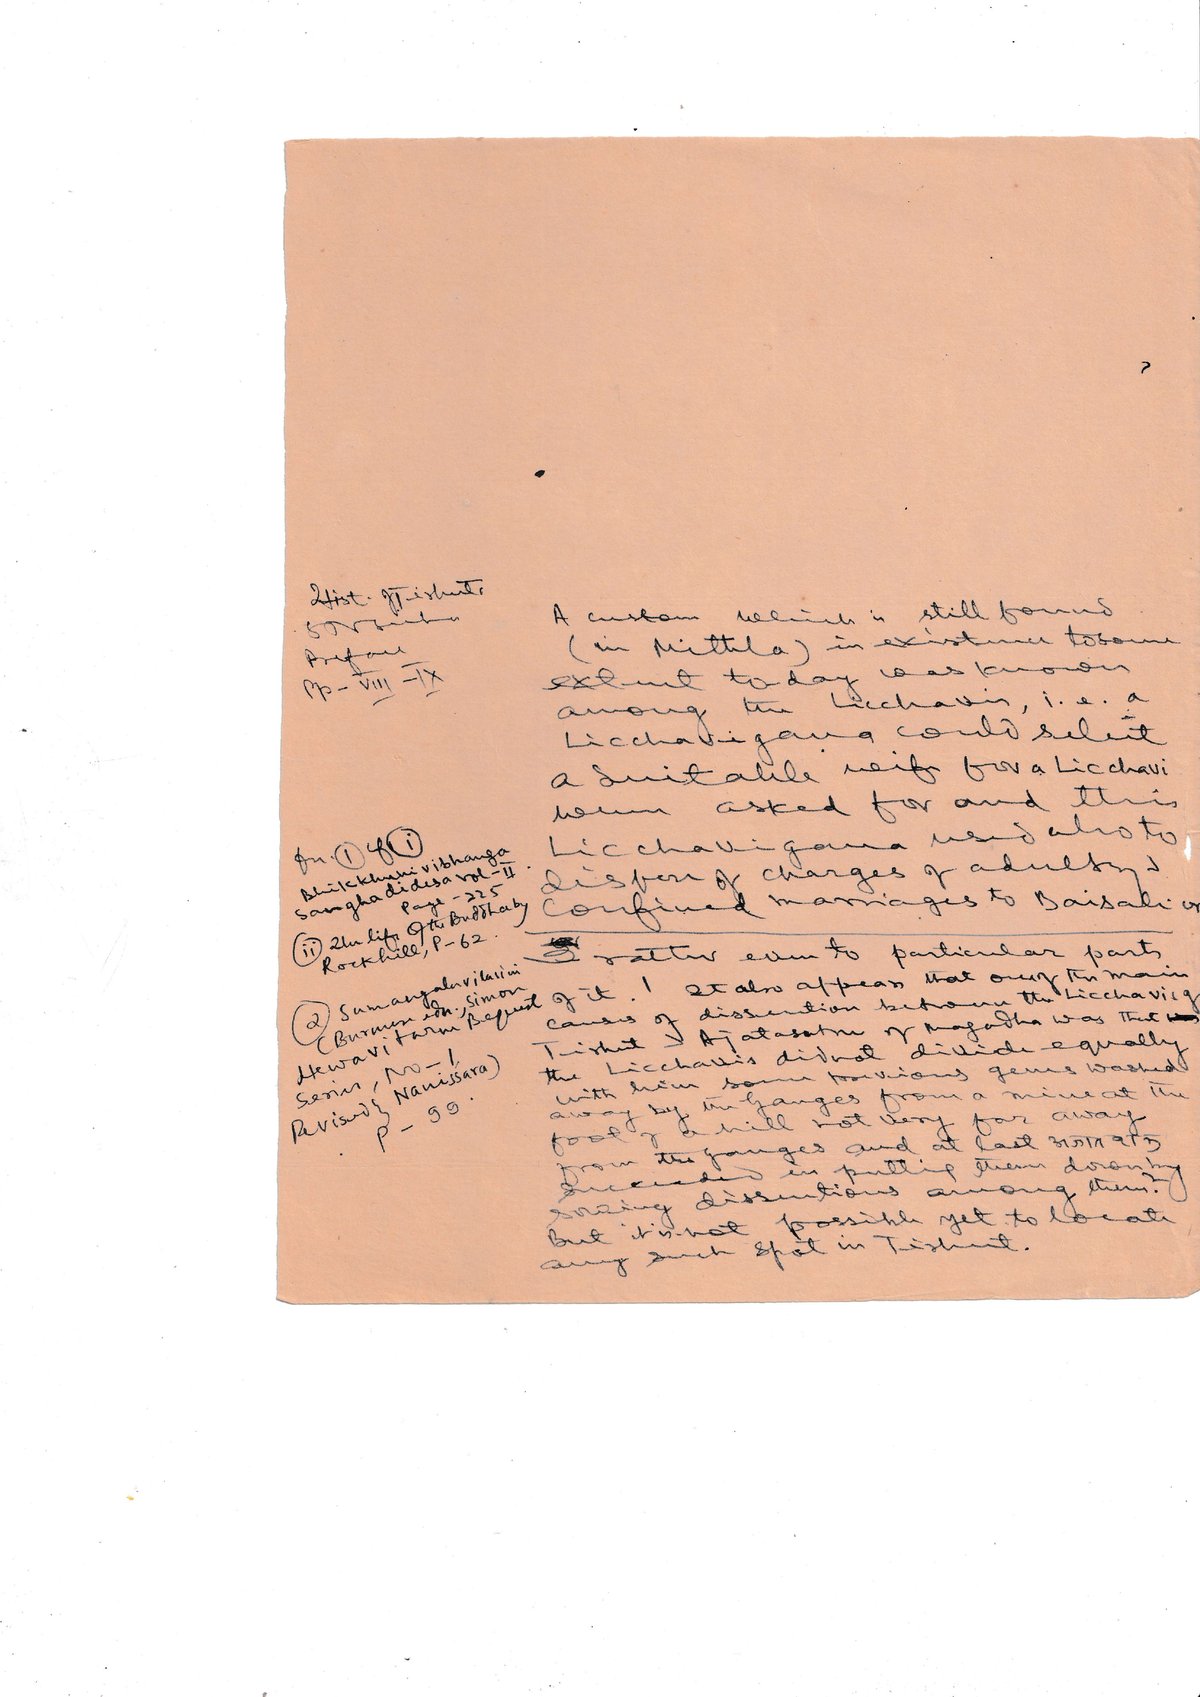 Hist. of Tirhut
S N Sinha
Preface
Pp - VIII - IX
A custom which is still found
(in Mithila) in existence to some
extent today was known
among the Licchavis, i.e. a
Licchavigana could select
a suitable wife for a Licchavi
when asked for and this
Licchavigana used also to
dispose of charges of adultery &
confined marriages to Baisali or
rather even to particular parts
of it. 1 It also appears that one of the main
causes of dissention between the Licchavis of
Tirhut & Ajatasatru of Magadha was that
the Licchavis did not divide equally
with him some precious gems washed
away by the Ganges from a mine at the
foot of a hill not very far away
from the Ganges and at last
succeeded in putting them down by
sowing dissentions among them. 2
But it is not possible yet to locate
any such spot in Tirhut.
fn. 1 of i
Bhikkhuni vibhanga
Sanghadidesa vol - II
Page - 225
ii The life of the Buddha by
Rockhill, P - 62.
2 Sumangalavilasini
(Burmese edn., Simon
Hewavitarne Bequest
Series, No - 1
Revised by Nanissara)
P - 99.